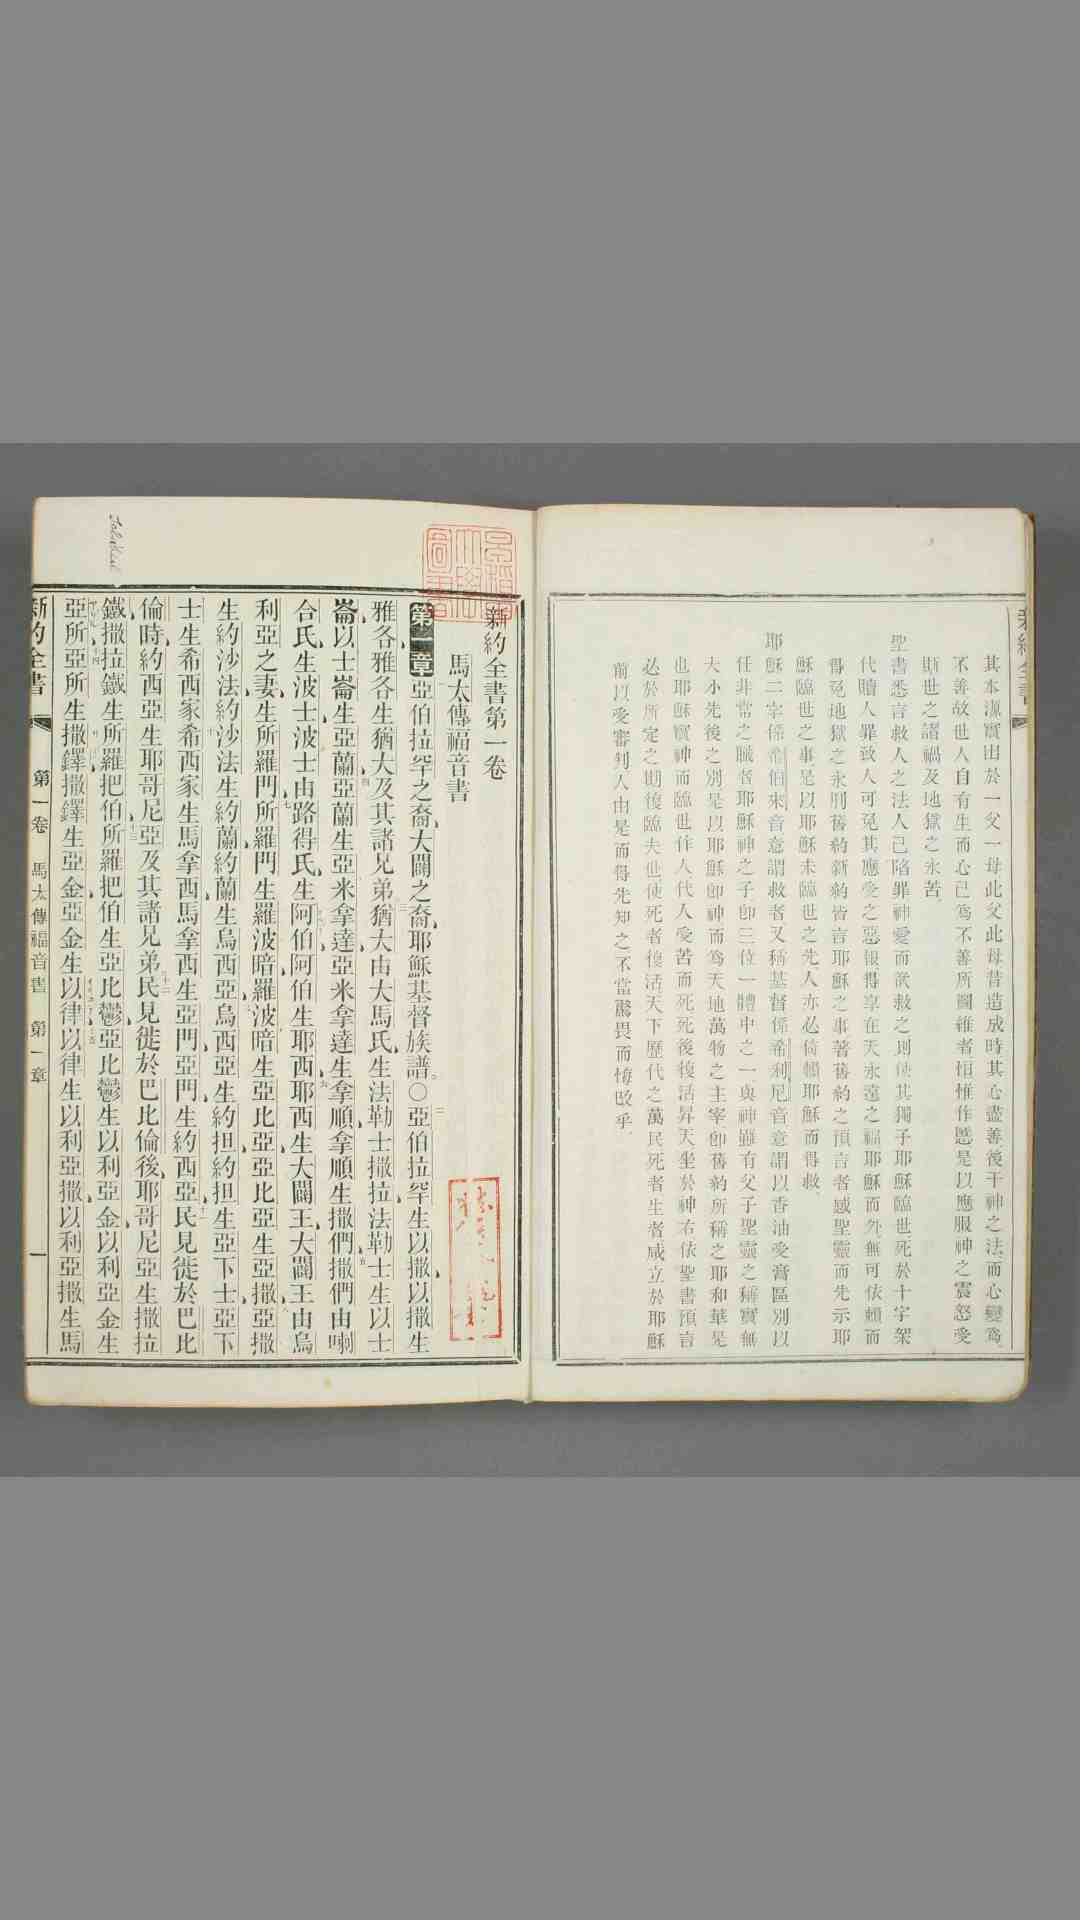 其本源實出於一父一母此父此母昔造成時其心盡善後干神之法而心變爲
不善故世人自有生而心已爲不善所圖維者恒惟作慝是以應服神之震怒受
斯世之諸禍及地獄之永苦
聖書悉言救人之法人已陷罪神愛而欲救之則使其獨子耶穌臨世死於十字架
代贖人罪致人可免其應受之惡報得享在天永遠之福耶穌而外無可依賴而
得免地獄之永刑舊約新約皆言耶穌之事著舊約之預言者感聖靈而先示耶
穌臨世之事是以耶穌未臨世之先人亦必倚賴耶穌而得救
耶穌二字係希伯來音意謂救者又稱基督係希利尼音意謂以香油受膏區別以
任非常之職者耶穌神之子卽三位一體中之一與神雖有父子聖靈之稱實無
大小先後之別是以耶穌卽神而爲天地萬物之主宰卽舊約所稱之耶和華是
也耶穌實神而臨世作人代人受苦而死死後復活昇天坐於神右依聖書預言
必於所定之期復臨夫世使死者復活天下歷代之萬民死者生者咸立於耶穌
前以受審判人由是而得先知之不當驚畏而悔改乎
新約全書第一卷
馬太傳福音書
第一章 亞伯拉罕之裔大闢之裔耶穌基督族譜〇亞伯拉罕生以撒以撒生
雅各雅各生猶大及其諸兄弟猶大由大馬氏生法勒士撒拉法勒士生以士
崙以士崙生亞蘭亞蘭生亞米拿達亞米拿達生拿順拿順生撒們撒們由喇
合氏生波士波士由路得氏生阿伯阿伯生耶西耶西生大闢王大闢王由烏
利亞之妻生所羅門所羅門生羅波暗羅波暗生亞比亞亞比亞生亞撒亞撒
生約沙法約沙法生約蘭約蘭生烏西亞烏西亞生約担約担生亞下士亞下
士生希西家希西家生馬拿西馬拿西生亞門亞門生約西亞民見徙於巴比
倫時約西亞生耶哥尼亞及其諸兄弟民見徙於巴比倫後耶哥尼亞生撒拉
鐵撒拉鐵生所羅把伯所羅把伯生亞比鬱亞比鬱生以利亞金以利亞金生
亞所亞所生撒鐸撒鐸生亞金亞金生以律以律生以利亞撒以利亞撒生馬
新約全書 第一卷 馬太傳福音書 第一章 一